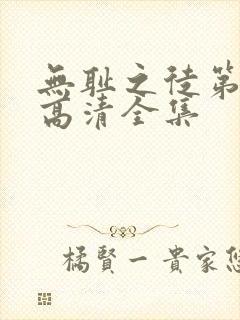 無耻之徒第
高清全集
橘賢一 貴家悠